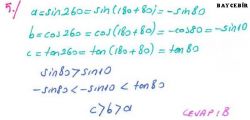 BAYCEBİR
5/ a = sin260 = sin(180+80) = -sin80
b = cos260 = cos(180+80) = -cos80 = -sin10
c = tan260 = tan(180+80) = tan80
sin80 > sin10
-sin80 < -sin10 < tan80
c > b > a
CEVAP:B